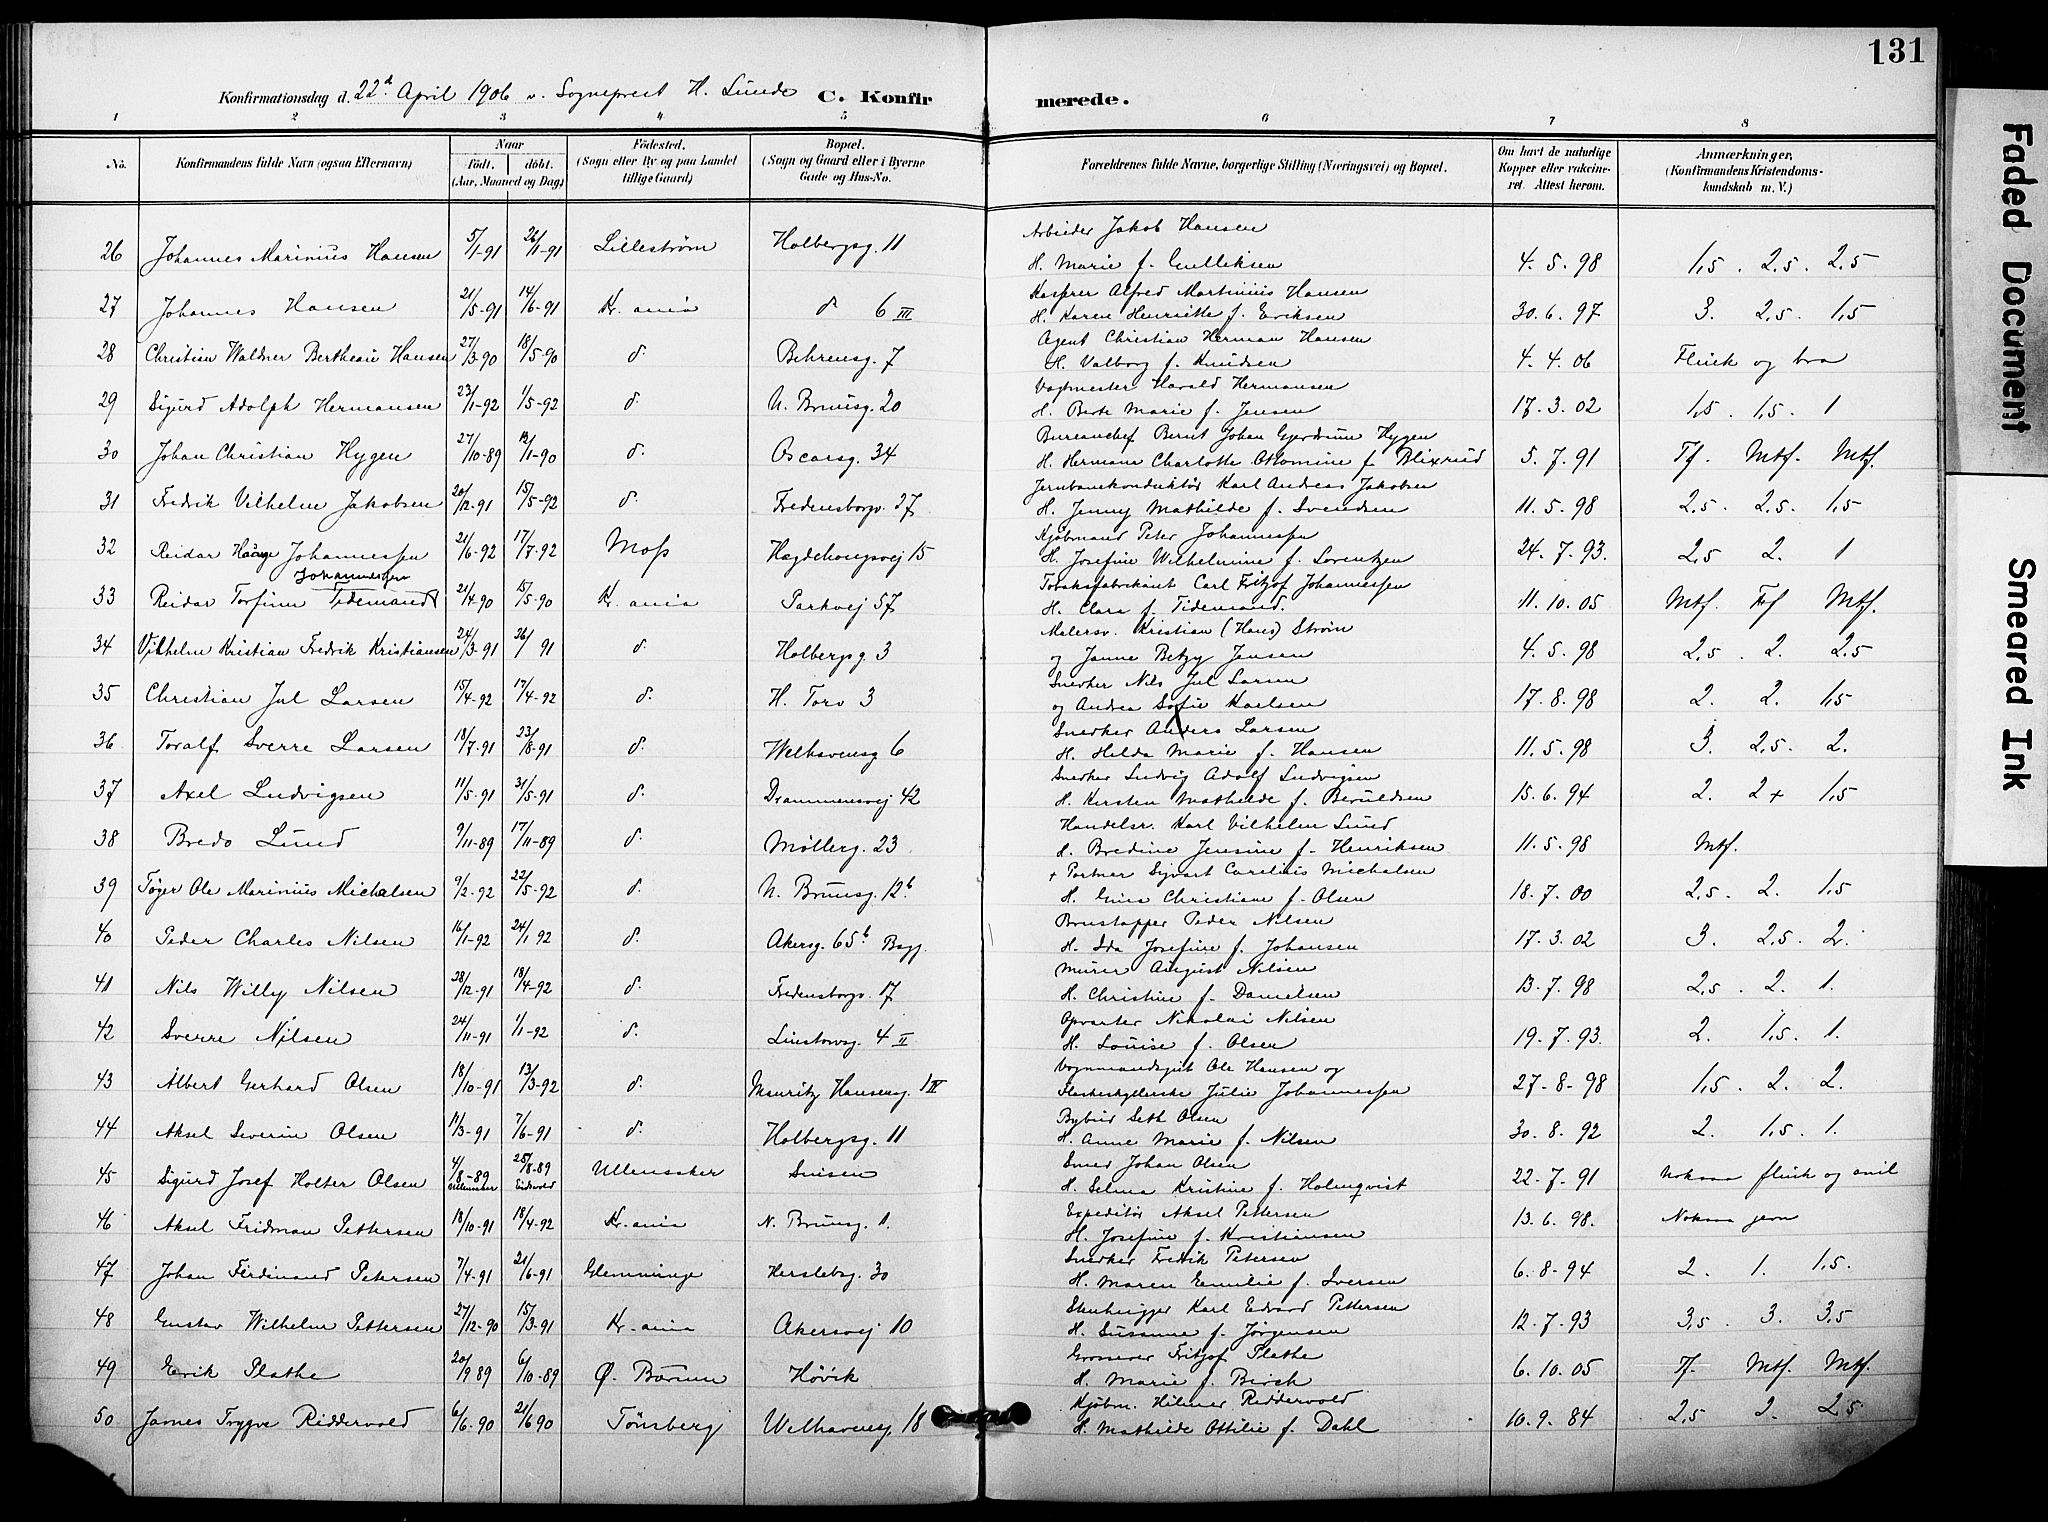 131
Konfirmationsdag d. 22d April 1906 v. Sogneprest H. Lunde C. Konfirmerede.
1 2 3 4 5 6 7 8
No. Konfirmandens fulde Navn (ogsaa Efternavn) Naar født. døbt. (Aar, Maaned og Dag) Fødested. (Sogn eller By og paa Landet tillige Gaard) Bopæl. (Sogn og Gaard eller i Byerne Gade og Hus-No. Forældrenes fulde Navne, borgerlige Stilling (Næringsvei) og Bopæl. Om havt de naturlige Kopper eller vakcineret. Attest herom. Anmærkninger, (Konfirmandens Kristendomskundskab m. V.)
26 Johannes Marinius Hansen 5/1-91 26/1-91 Lillestrøm Holbergsg. 11 Arbeider Jakob Hansen
H. Marie f. Gulliksen 4.5.98 1,5. 2,5. 2,5
27 Johannes Hansen 21/5-91 14/6-91 Kr.ania d. 6 III Kasserer Alfred Martinius Hansen
H. Karen Henriette f. Eriksen 30.6.97 3. 2,5. 1,5
28 Christian Waldner Bertheau Hansen 27/3-90 18/5-90 d. Behrensg. 7 Agent Christian Herman Hansen
H. Valborg f. Knudsen 4.4.06 Flink og bra
29 Sigurd Adolph Hermansen 23/1-92 1/5-92 d. N. Brunsg. 20 Vagtmester Harald Hermansen
H. Berte Marie f. Jensen 17.3.02 1,5. 1,5. 1
30 Johan Christian Hygen 27/10-89 12/1-90 d. Oscarsg. 34 Bureauchef Bernt Johan Gjerdrum Hygen
H. Hermana Charlotte Ottomine f. Blixrud 5.7.91 Tf. Mtf. Mtf.
31 Fredrik Vilhelm Jakobsen 20/12-91 15/5-92 d. Fredensborgv. 27 Jernbanekonduktør Karl Andreas Jakobsen
H. Jenny Mathilde f. Svendsen 11.5.98 2,5. 2,5. 1,5
32 Reidar Hauge Johannessen 21/6-92 17/7-92 Moss Hægdehougsvej 15 Kjøbmand Peter Johannessen
H. Josefine Wilhelmine f. Lorentzen 24.7.93. 2,5 2. 1
Johannessen
33 Reidar Torfinn Tidemand 21/4-90 15/5-90 Kr.ania Parkvej 57 Tobaksfabrikant Carl Fritjof Johannessen
H. Clara f. Tidemand. 11.10.05 Mtf. Tf Mtf.
34 Vilhelm Kristian Fredrik Kristiansen 24/3-91 26/ 91 d. Holbergsg. 3 Malersv. Kristian (Hans) Strøm
og Janne Betzy Jensen 4.5.98 2,5. 2. 2,5
35 Christian Jul Larsen 15/4-92 17/4-92 d. H. Torv 3 Snedker Nils Jul Larsen
og Andrea Sofie Karlsen 17.8.98 2. 2. 1,5
36 Toralf Sverre Larsen 18/7-91 23/8-91 d. Welhavensg 6 Snedker Anders Larsen
H. Hilda Marie f. Hansen 11.5.98 3. 2,5. 2.
37 Axel Ludvigsen 11/5-91 31/5-91 d. Drammensvej 42 Snedker Ludvig Adolf Ludvigsen
H. Kersten Mathilde f. Beruldsen 15.6.94 2. 2+ 1,5
38 Bredo Lund 9/11-89 17/11-89 d. Møllerg. 23. Handelsr. Karl Vilhelm Lund
H. Bredine Jensine f. Henriksen 11.5.98 Mtf.
39 Tøger Ole Marinius Michalsen 9/2-92 22/5-92 d. N. Brunsg. 12b + Portner Sigvart Carelius Michalsen
H. Gina Christiane f. Olsen 18.7.00 2,5. 2. 1,5
40 Peder Charles Nilsen 16/1-92 24/1 92 d. Akersg. 65b Bagg. Brustapper Peder Nilsen
H. Ida Josefine f. Johansen 17.3.02 3. 2,5. 2.
41 Nils Willy Nilsen 28/12-91 18/4-92 d. Fredensborgv. 17 Murer August Nilsen
H. Christine f. Danielsen 13.7.98 2,5. 2. 1.
42 Sverre Nilsen 24/11-91 1/1-92 d. Linstowsg. 4 II Opvarter Nikolai Nilsen
H. Louise f. Olsen 19.7.93. 2. 1,5. 1.
43 Albert Gerhard Olsen 18/10-91 13/3-92 d. Mauritz Hansensg. 1 IV Vognmandsgut Ole Hansen og
Flaskeskyllerske Julie Johannessen 27-8-98 1,5. 2. 2.
44 Aksel Severin Olsen 11/3-91 7/6-91 d. Holbergsg. 11 Bybud Seth Olsen
H. Anne Marie f. Nilsen 30.8.92 2. 1,5. 1.
45 Sigurd Josef Holter Olsen 4/8-89 Ullensaker 25/8-89 Eidsvold Ullensaker Smed Johan Olsen
H. Selma Kristine f. Holmqvist 22.7.91 Noksaa flink og snil
46 Aksel Fridman Pettersen 18/10-91 18/4-92 Kr.ania N. Brunsg. 1. Expeditør Aksel Pettersen
H. Josefine f. Kristiansen 13.6.98. Noksaa jevn
47 Johan Ferdinand Petersen 7/4-91 21/6-91 Glemminge Herslebsg. 30 Snedker Fredrik Petersen
H. Maren Emilie f. Iversen 6.8-94 2. 1. 1,5.
48 Gustav Wilhelm Pettersen 27/12-90 15/3-91 Kr.ania Akersvej 10 Stenhugger Karl Edvard Pettersen
H. Susanne f. Jørgensen 12.7.93 3,5. 3. 3,5
49 Erik Plathe 20/9 89 6/10-89 Ø. Bærum Høvik Grosserer Fritjof Plathe
H. Marie f. Birch 6.10.05 Tf. Mtf. Mtf.
50 James Trygve Riddervold 6/6-90 21/6 90 Tønsberg Welhavensg 18 Kjøbm. Hilmar Riddervold
H. Mathilde Ottilie f. Dahl 10.9.84 2,5 2. 2,5
Faded Document
Smeared Ink